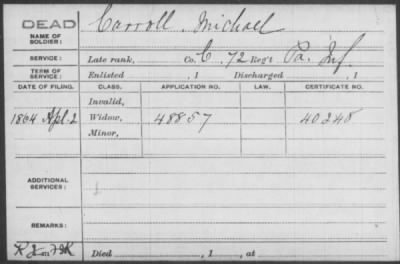 DEAD
NAME OF SOLDIER: Carroll, Michael
SERVICE: Late rank, Co. C, 72 Reg't Pa. Inf.
TERM OF SERVICE: Enlisted , 1 Discharged , 1
DATE OF FILING. CLASS. APPLICATION NO. LAW. CERTIFICATE NO.
Invalid,
1864 Apl. 2 Widow, 48857 40248
Minor,
ADDITIONAL SERVICES:
REMARKS:
Died , 1 , at